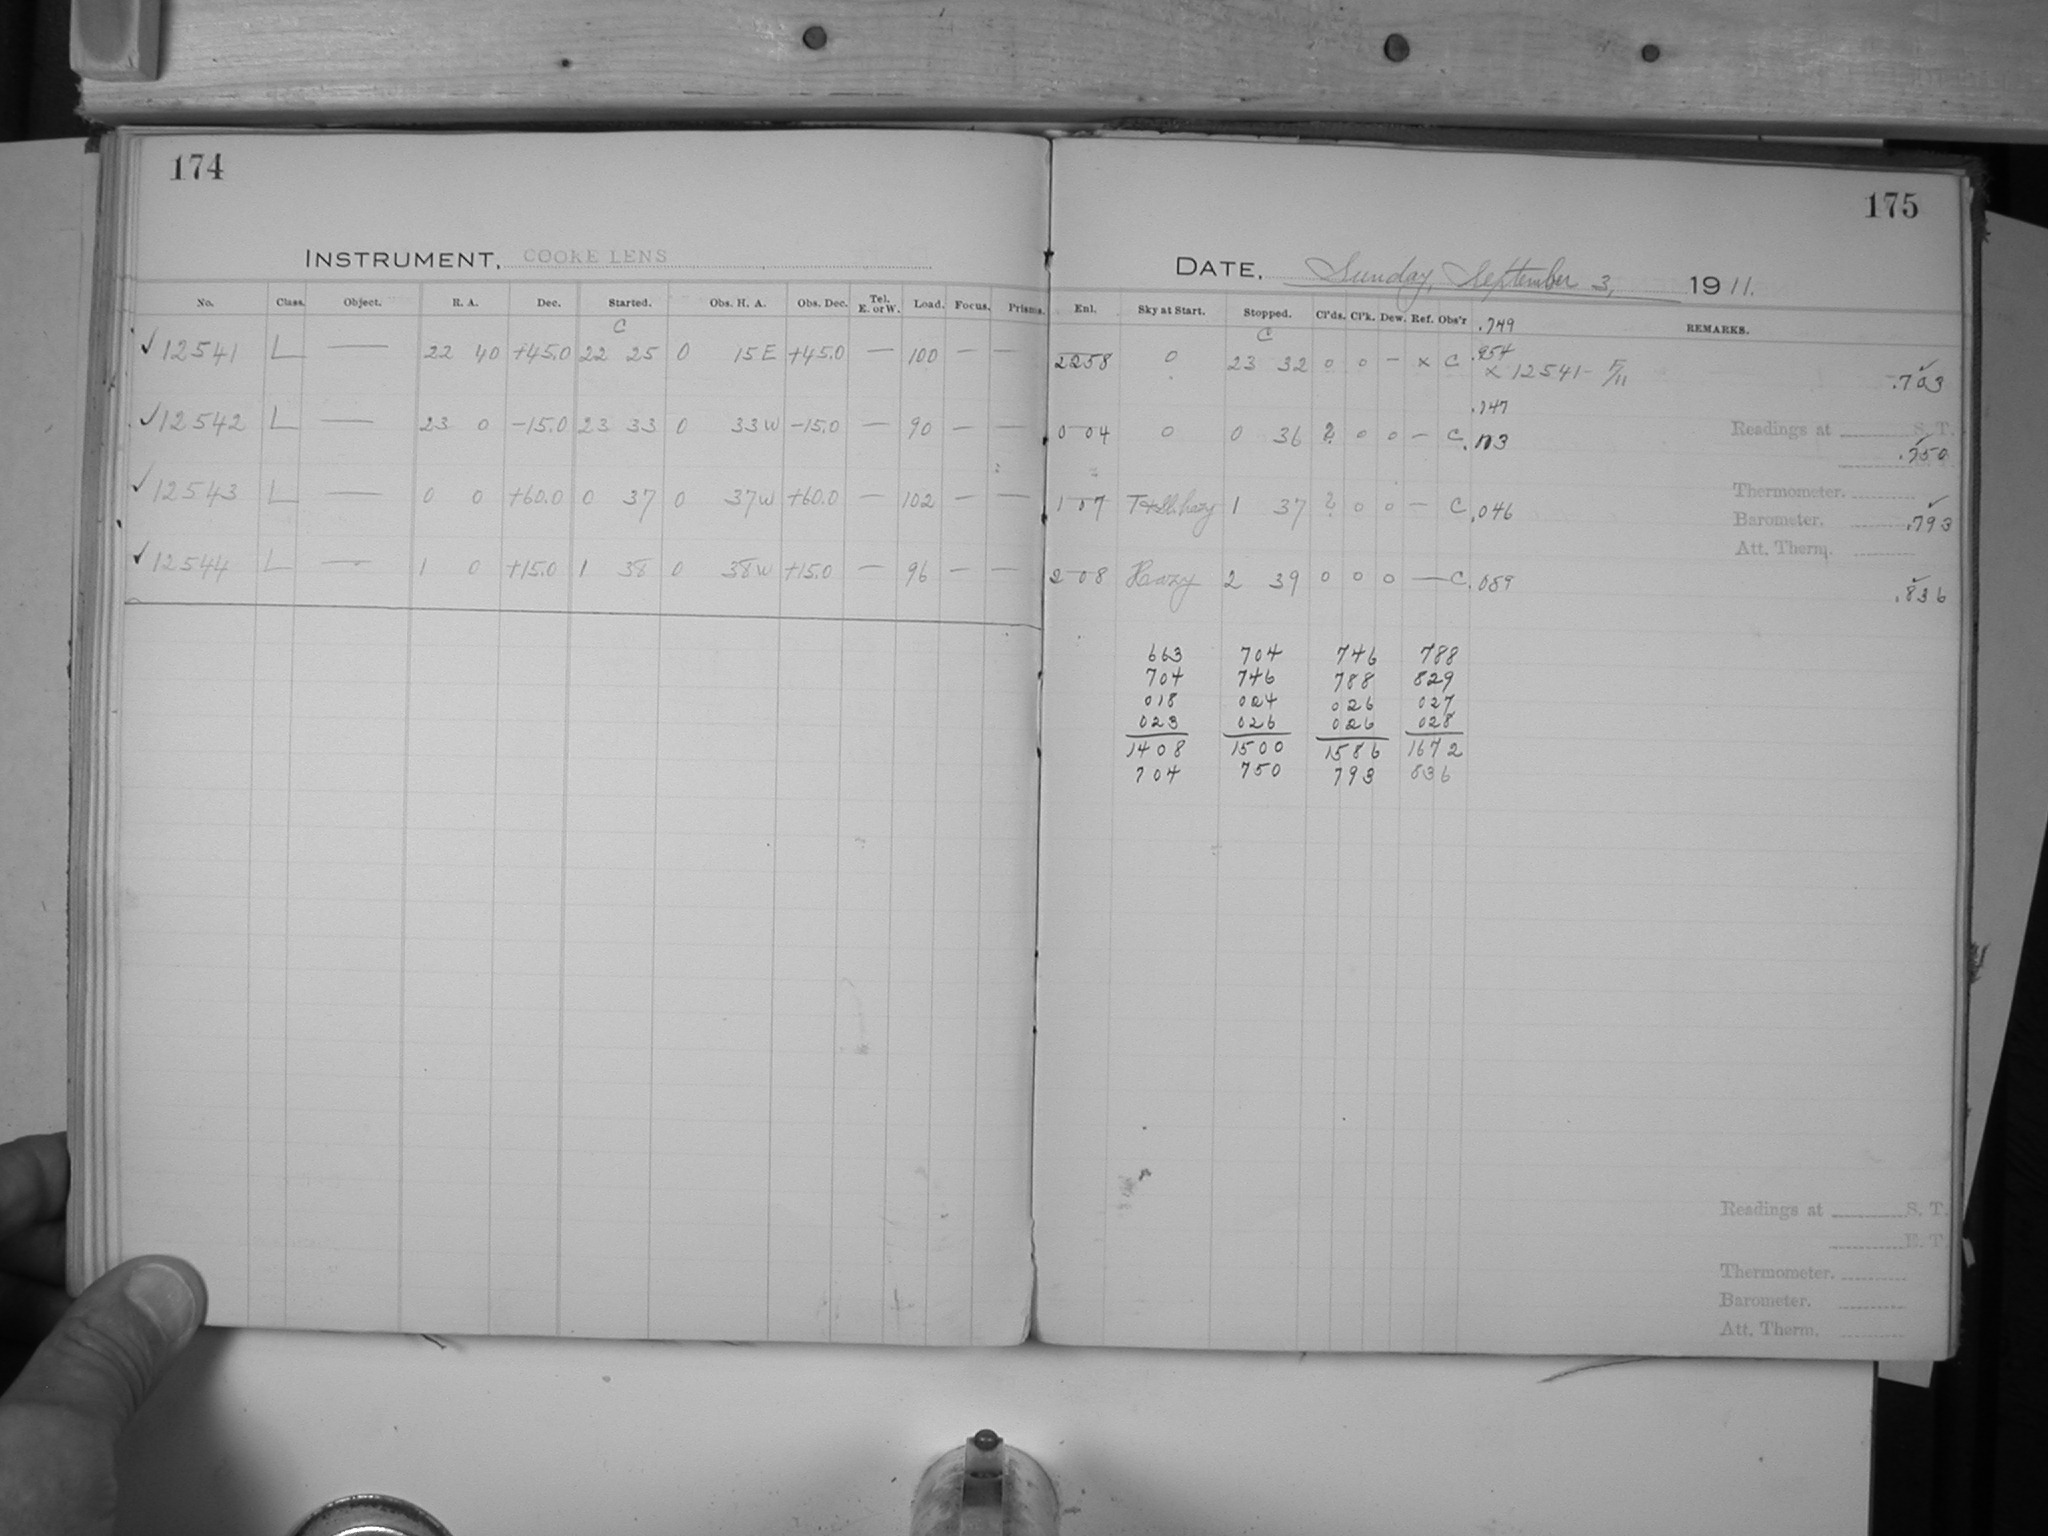 174
INSTRUMENT, COOKE LENS
No. Class. Object. R. A. Dec. Started. Obs. H. A. Obs. Dec. Tel. E. or W. Load. Focus. Prisms.
C
✓12541 L — 22 40 +45.0 22 25 0 15 E +45.0 — 100 — —
✓12542 L — 23 0 -15.0 23 33 0 33 W -15.0 — 90 — —
✓12543 L — 0 0 +60.0 0 37 0 37 W +60.0 — 102 — —
✓12544 L — 1 0 +15.0 1 38 0 38 W +15.0 — 96 — —
175
DATE, Sunday, September 3, 1911.
Enl. Sky at Start. Stopped. Cl'ds. Cl'k. Dew. Ref. Obs'r .749 REMARKS.
C
2258 0 23 32 0 0 — x C .954
x 12541 - F/11 .703
.747
0 04 0 0 36 2 0 0 — C .173
Readings at S. T.
.750
1 07 hazy 1 37 2 0 0 — C .046
Thermometer.
Barometer. .793
Att. Therm.
2 08 Hazy 2 39 0 0 0 — C .059
.836
663 704 746 788
704 746 788 829
018 024 026 027
023 026 026 028
1408 1500 1586 1672
704 750 793 836
Readings at S. T.
E. T.
Thermometer.
Barometer.
Att. Therm.